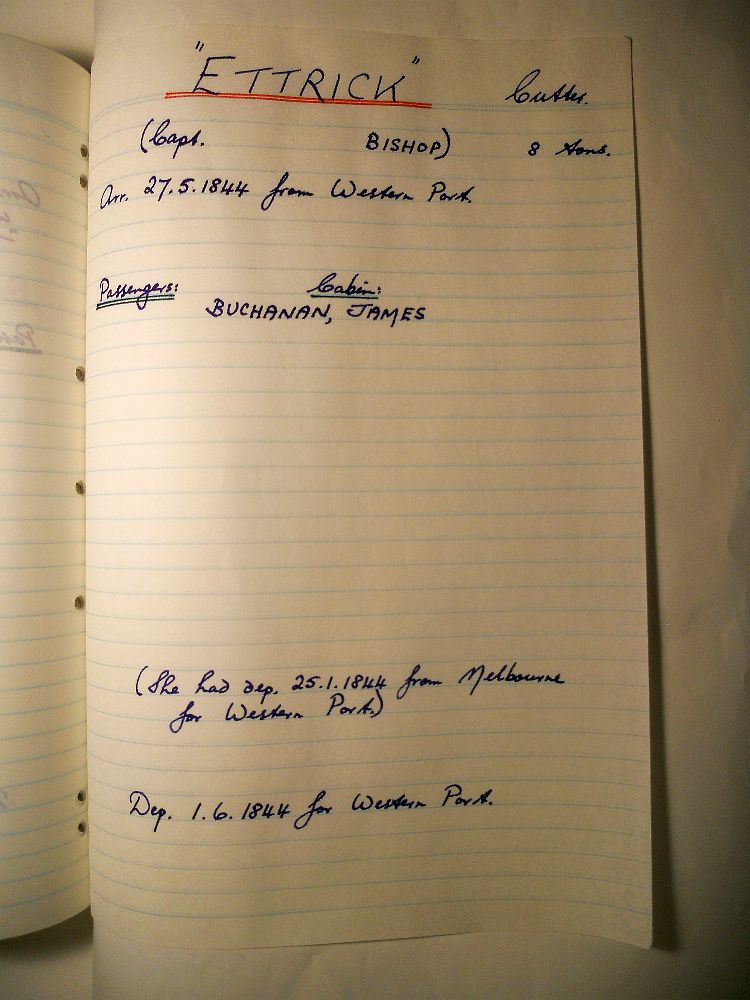 "ETTRICK" Cutter.
(Capt. BISHOP) 8 tons.
Arr. 27.5.1844 from Western Port.
Passengers: Cabin:
BUCHANAN, JAMES
(She had dep. 25.1.1844 from Melbourne
for Western Port.)
Dep. 1.6.1844 for Western Port.